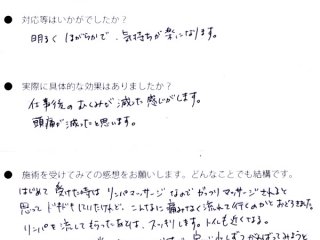 ● 対応等はいかがでしたか？
明るく ほがらかで、気持ちが楽になります。
● 実際に具体的な効果はありましたか？
仕事後のむくみが減った感じがします。
頭痛が減ったと思います。
● 施術を受けてみての感想をお願いします。どんなことでも結構です。
はじめて受けた時は リンパマッサージなのでガッツリマッサージされると
思ってドキドキしていたけれど、こんなに痛みなく流れて行くのかとおどろきました。
リンパを流してもらったあとは、スッキリします。トイレも近くなる。